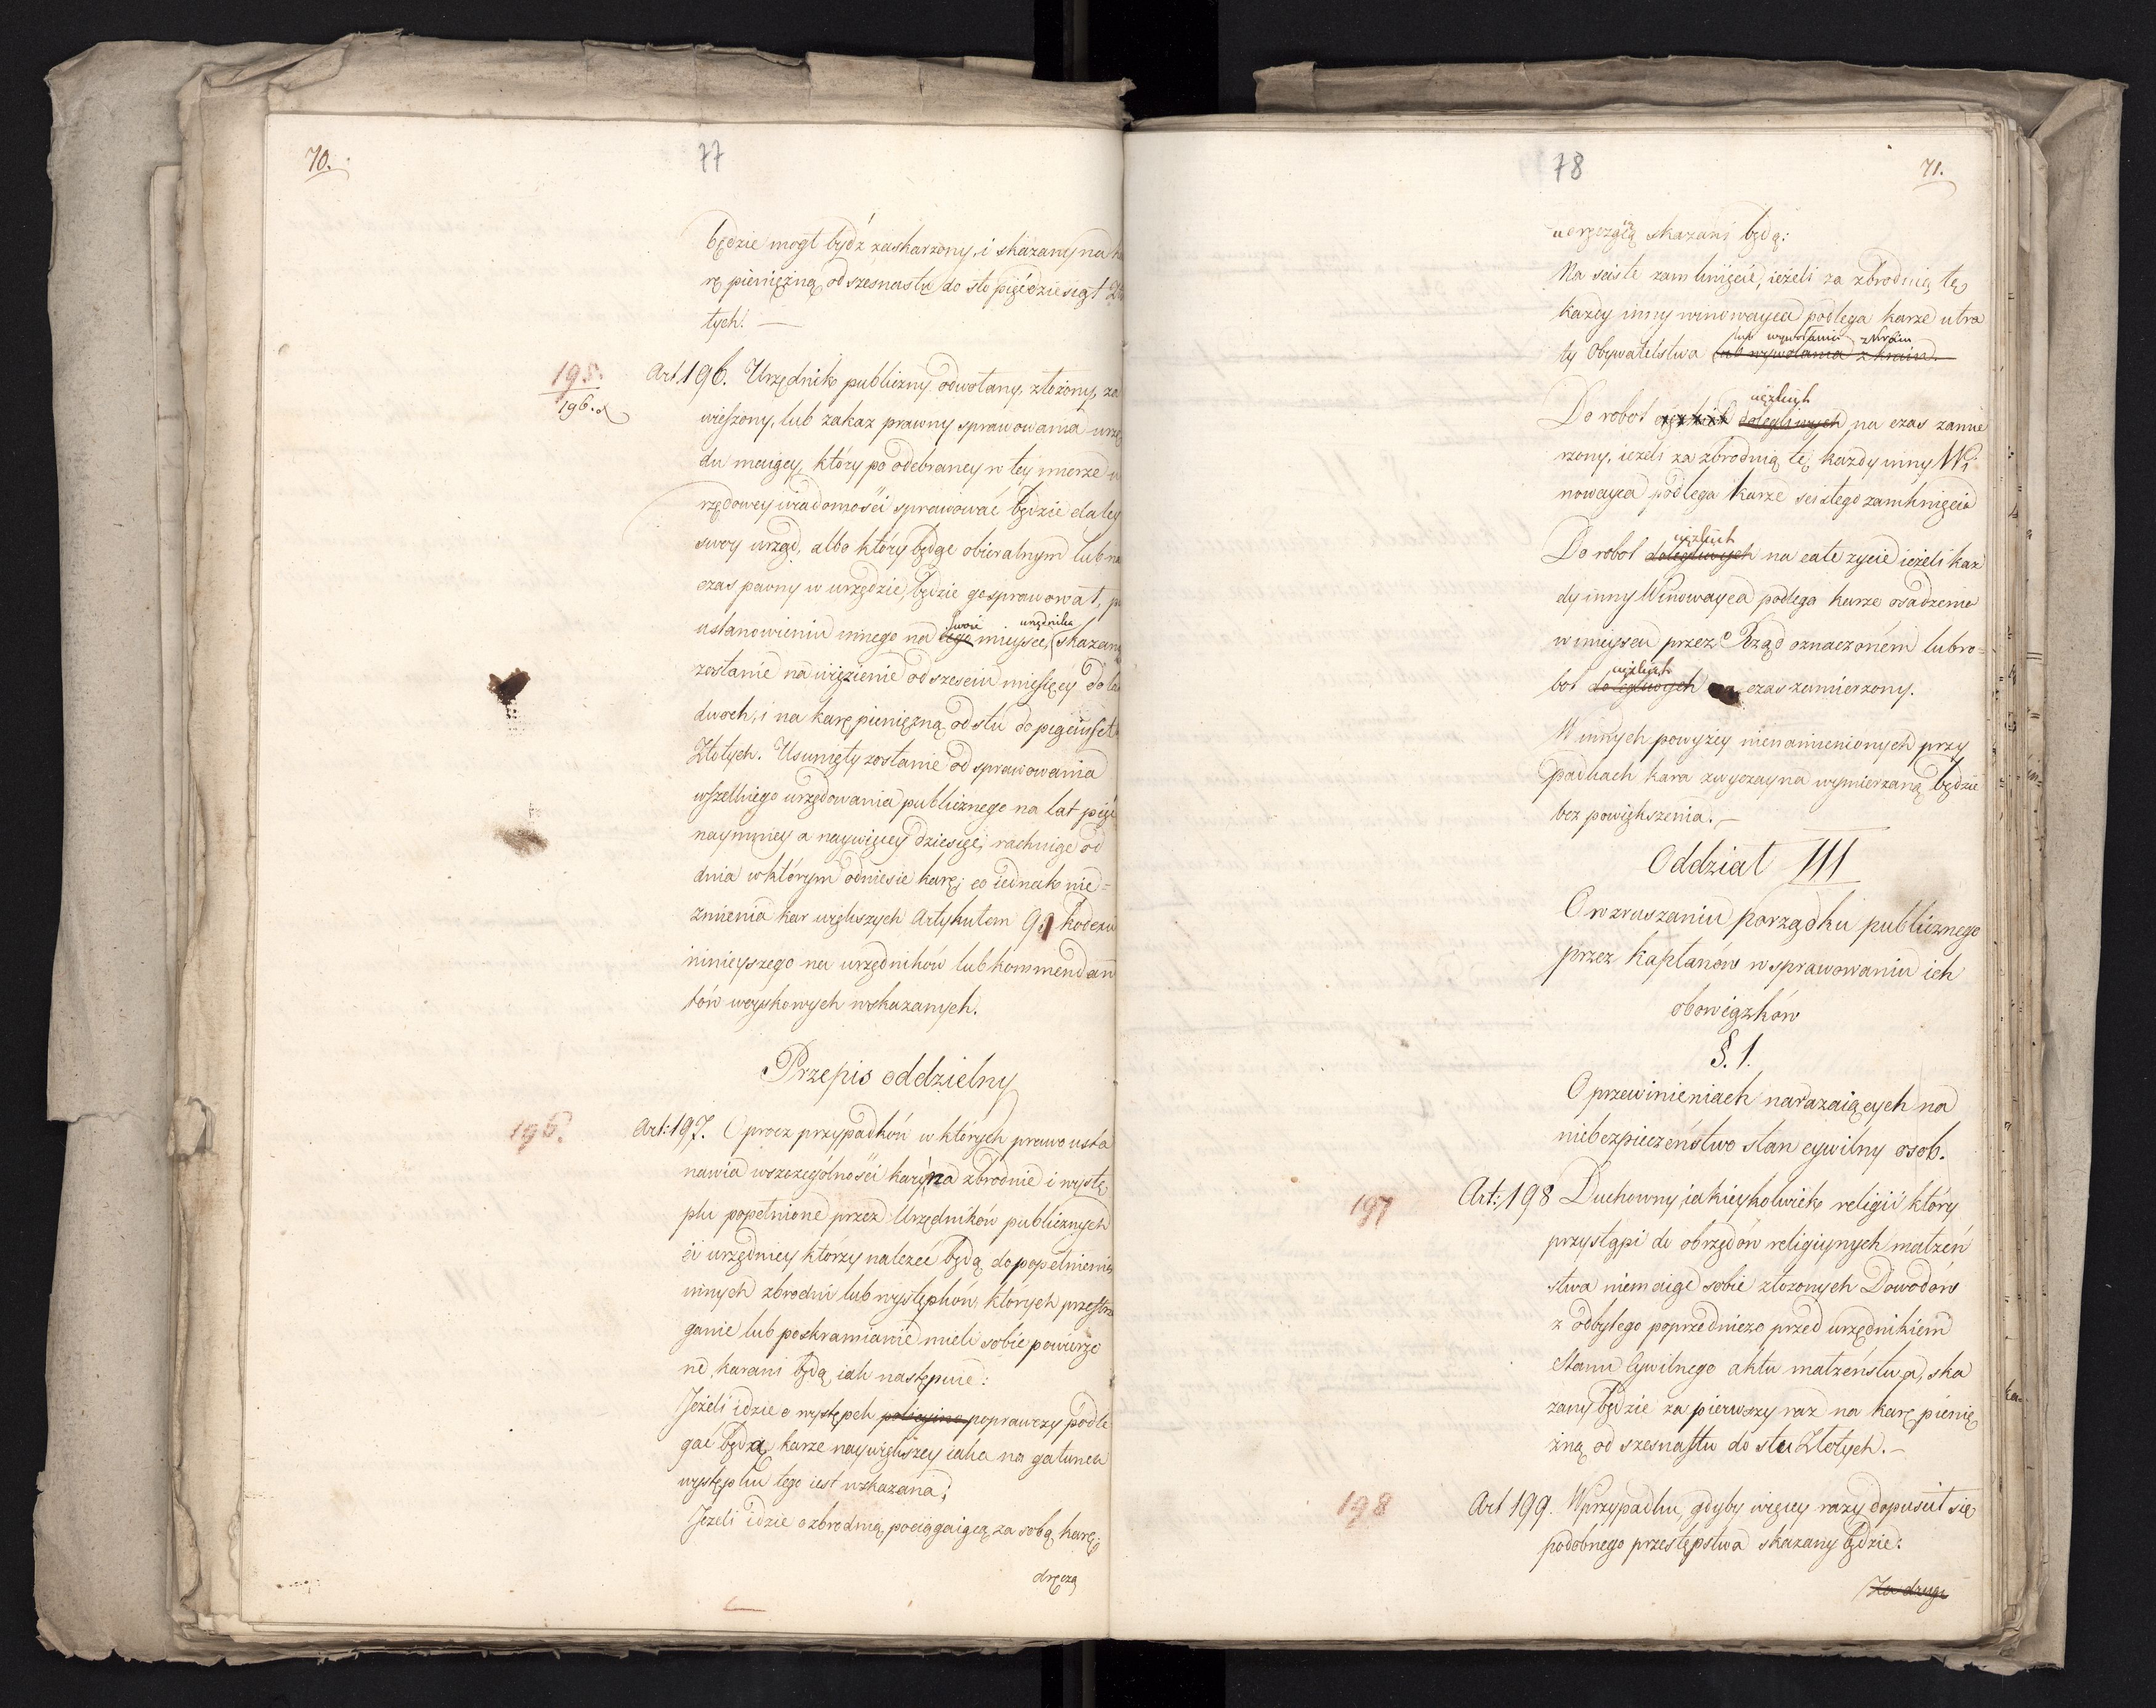 70.
77
będzie mogł bydź zaskarzony, i skazany na ka
rę pieniężną od szesnastu do sto pięćdziesiąt Zło
tych. —
195.
196.
Art. 196. Urzędnik publiczny odwołany, złożony, za
wieszony, lub zakaz prawny sprawowania urzę
du maiący, który po odebraney w tey mierze u
rzędowey wiadomości sprawować będzie daley
swoy urząd, albo który będąc obieralnym lub na
czas pewny w urzędzie, będzie go sprawował, po
swoie urzędnika
ustanowieniu innego na iego mieysce, skazany
zostanie na więzienie od sześciu miesięcy do lat
dwoch, i na karę pieniężną od stu do pięciuset
Złotych. Usunięty zostanie od sprawowania
wszelkiego urzędowania publicznego na lat pięć
naymniey a naywięcey dziesięć, rachuiąc od
dnia w którym odniesie karę; co iednak nie=
zmienia kar większych Artykułem 91 kodexu
ninieyszego na urzędników lub kommendan
tów woyskowych wskazanych.
Przepis oddzielny
196.
Art: 197. Oprocz przypadków w których prawo usta
nawia wszczególności kary na zbrodnie i wystę
pku popełnione przez Urzędników publicznych
ci urzędnicy którzy należeć będą do popełnienia
innych zbrodni lub występków, których przestrze
ganie lub poskramianie mieli sobie powierzo
ne, karani będą iak następuie:
Jeżeli idzie o występek policyine poprawczy podle
gać będą karze naywiększey iaka na gatunek
występku tego iest wskazana;
Jeżeli idzie o zbrodnią, pociągaiącą za sobą karę
dręczą
78
71.
uczącą skazani będą:
Na ścisłe zamknięcie, ieżeli za zbrodnią tę
każdy inny winowayca podlega karze utra
lub wywołania z kraiu
ty Obywatelstwa lub wywołania z kraiu.
ciężkich
Do robot ciężkich dolegliwych na czas zamie
rzony, ieżeli za zbrodnią tę, każdy inny Wi
nowayca podlega karze ścisłego zamknięcia
ciężkich
Do robot dolegliwych na całe życie ieżeli każ
dy inny Winowayca podlega karze osadzenia
w mieyscu przez Rząd oznaczoném lub ro=
ciężkich
bot dolegliwych na czas zamierzony.
W innych powyżey nienamienionych przy
padkach kara zwyczayna wymierzaną będzie
bez powiększenia. —
Oddział III
O wzruszaniu porządku publicznego
przez kapłanów w sprawowaniu ich
obowiązków
§. 1.
O przewinieniach narażaiących na
niebezpieczeństwo stan cywilny osob.
197
Art: 198 Duchowny iakieykolwiek religii który
przystąpi do obrzędów religiynych małżeń
stwa niemaiąc sobie złożonych Dowodów
z odbytego poprzedniczo przed urzędnikiem
Stanu Cywilnego aktu małżeństwa, ska
zany będzie za pierwszy raz na karę pienię
żną od szesnastu do stu Złotych. —
198
Art 199. W przypadku, gdyby więcey razy dopuścił się
podobnego przestępstwa skazany będzie:
Za drugi